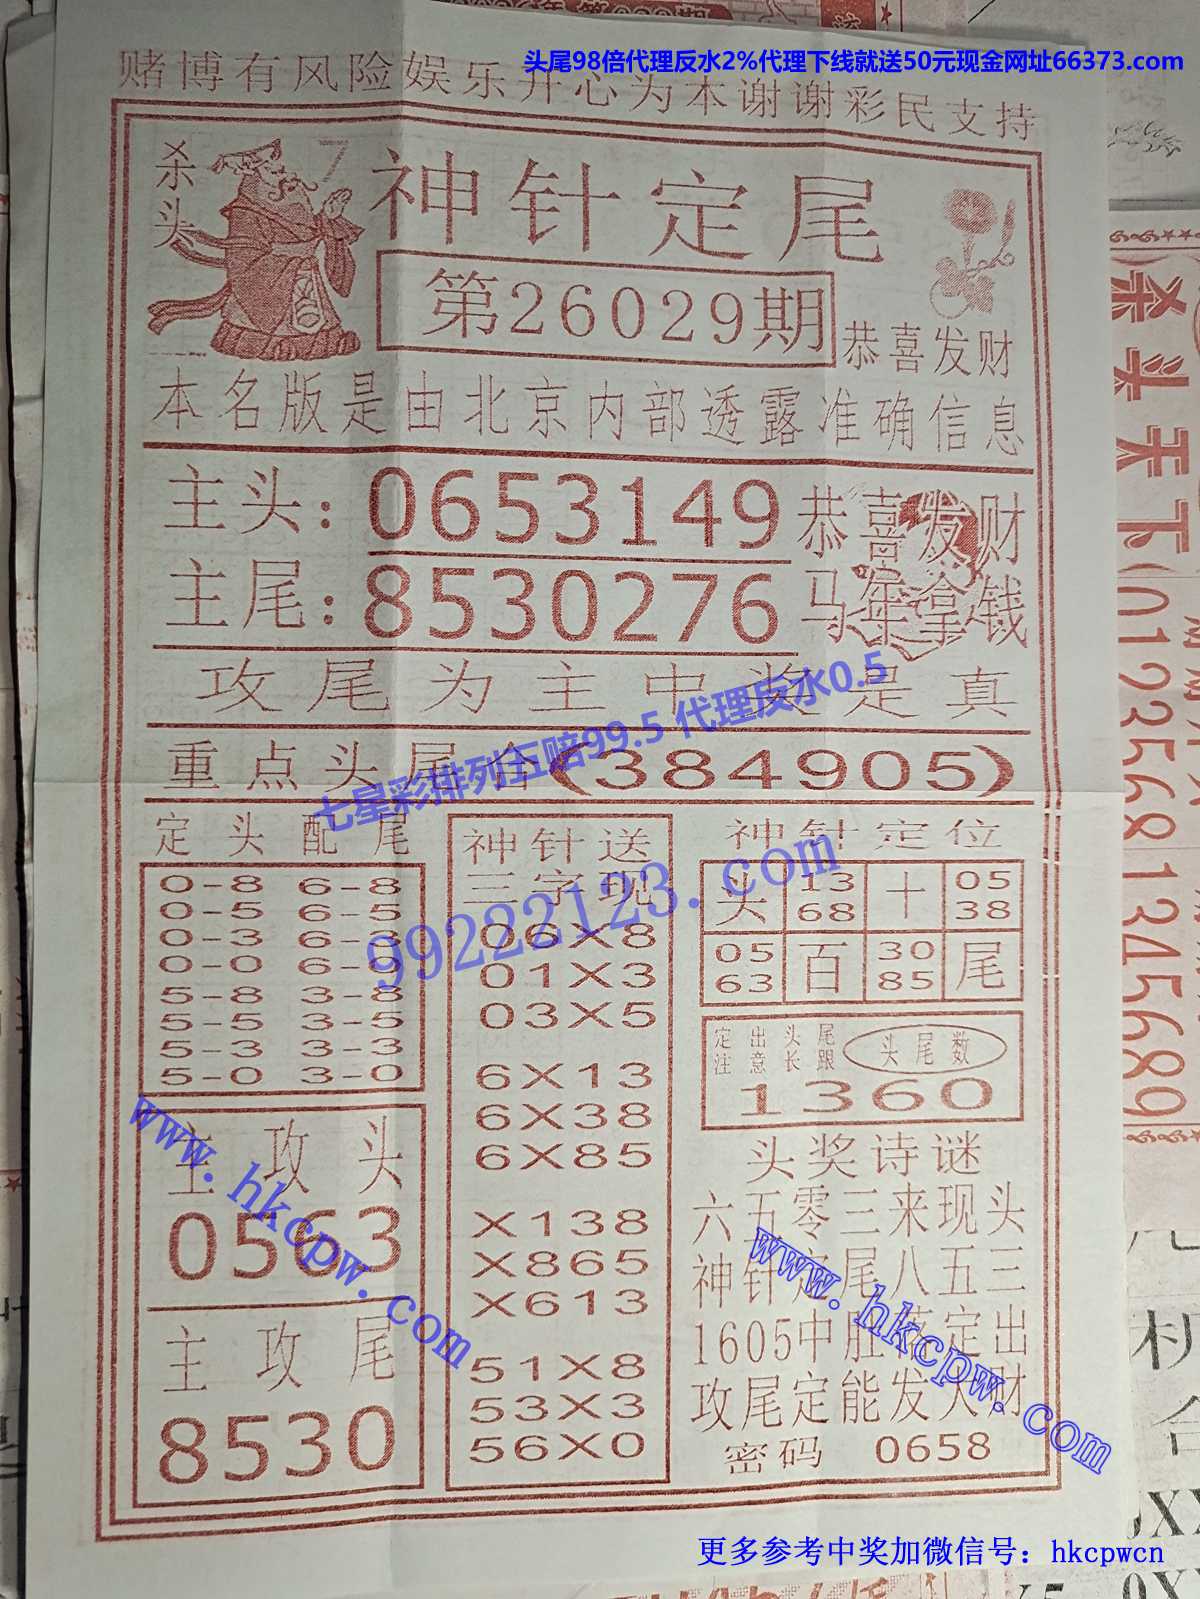 头尾98倍代理反水2%代理下线就送50元现金网址66373.com
赌博有风险娱乐开心为本谢谢彩民支持
杀头
7
神针定尾
第26029期
恭喜发财
本名版是由北京内部透露准确信息
主头：0653149
恭喜发财
主尾：8530276
马年拿钱
攻尾为主中奖是真
七星彩排列五赔99.5 代理反水0.5
重点头尾合(384905)
定头配尾
0-8 6-8
0-5 6-5
0-3 6-3
0-0 6-0
5-8 3-8
5-5 3-5
5-3 3-3
5-0 3-0
主攻头
0563
主攻尾
8530
神针送
三字现
06X8
01X3
03X5
6X13
6X38
6X85
X138
X865
X613
51X8
53X3
56X0
99222123.com
神针定位
头 13 68 十 05 38
05 63 百 30 85 尾
定出头尾
注意长跟
头尾数
1360
头奖诗谜
六五零三来现头
神针定尾八五三
1605中肚稳定出
攻尾定能发大财
密码 0658
www.hkcpw.com
www.hkcpw.com
杀头天下(01235681345689
更多参考中奖加微信号：hkcpwcn